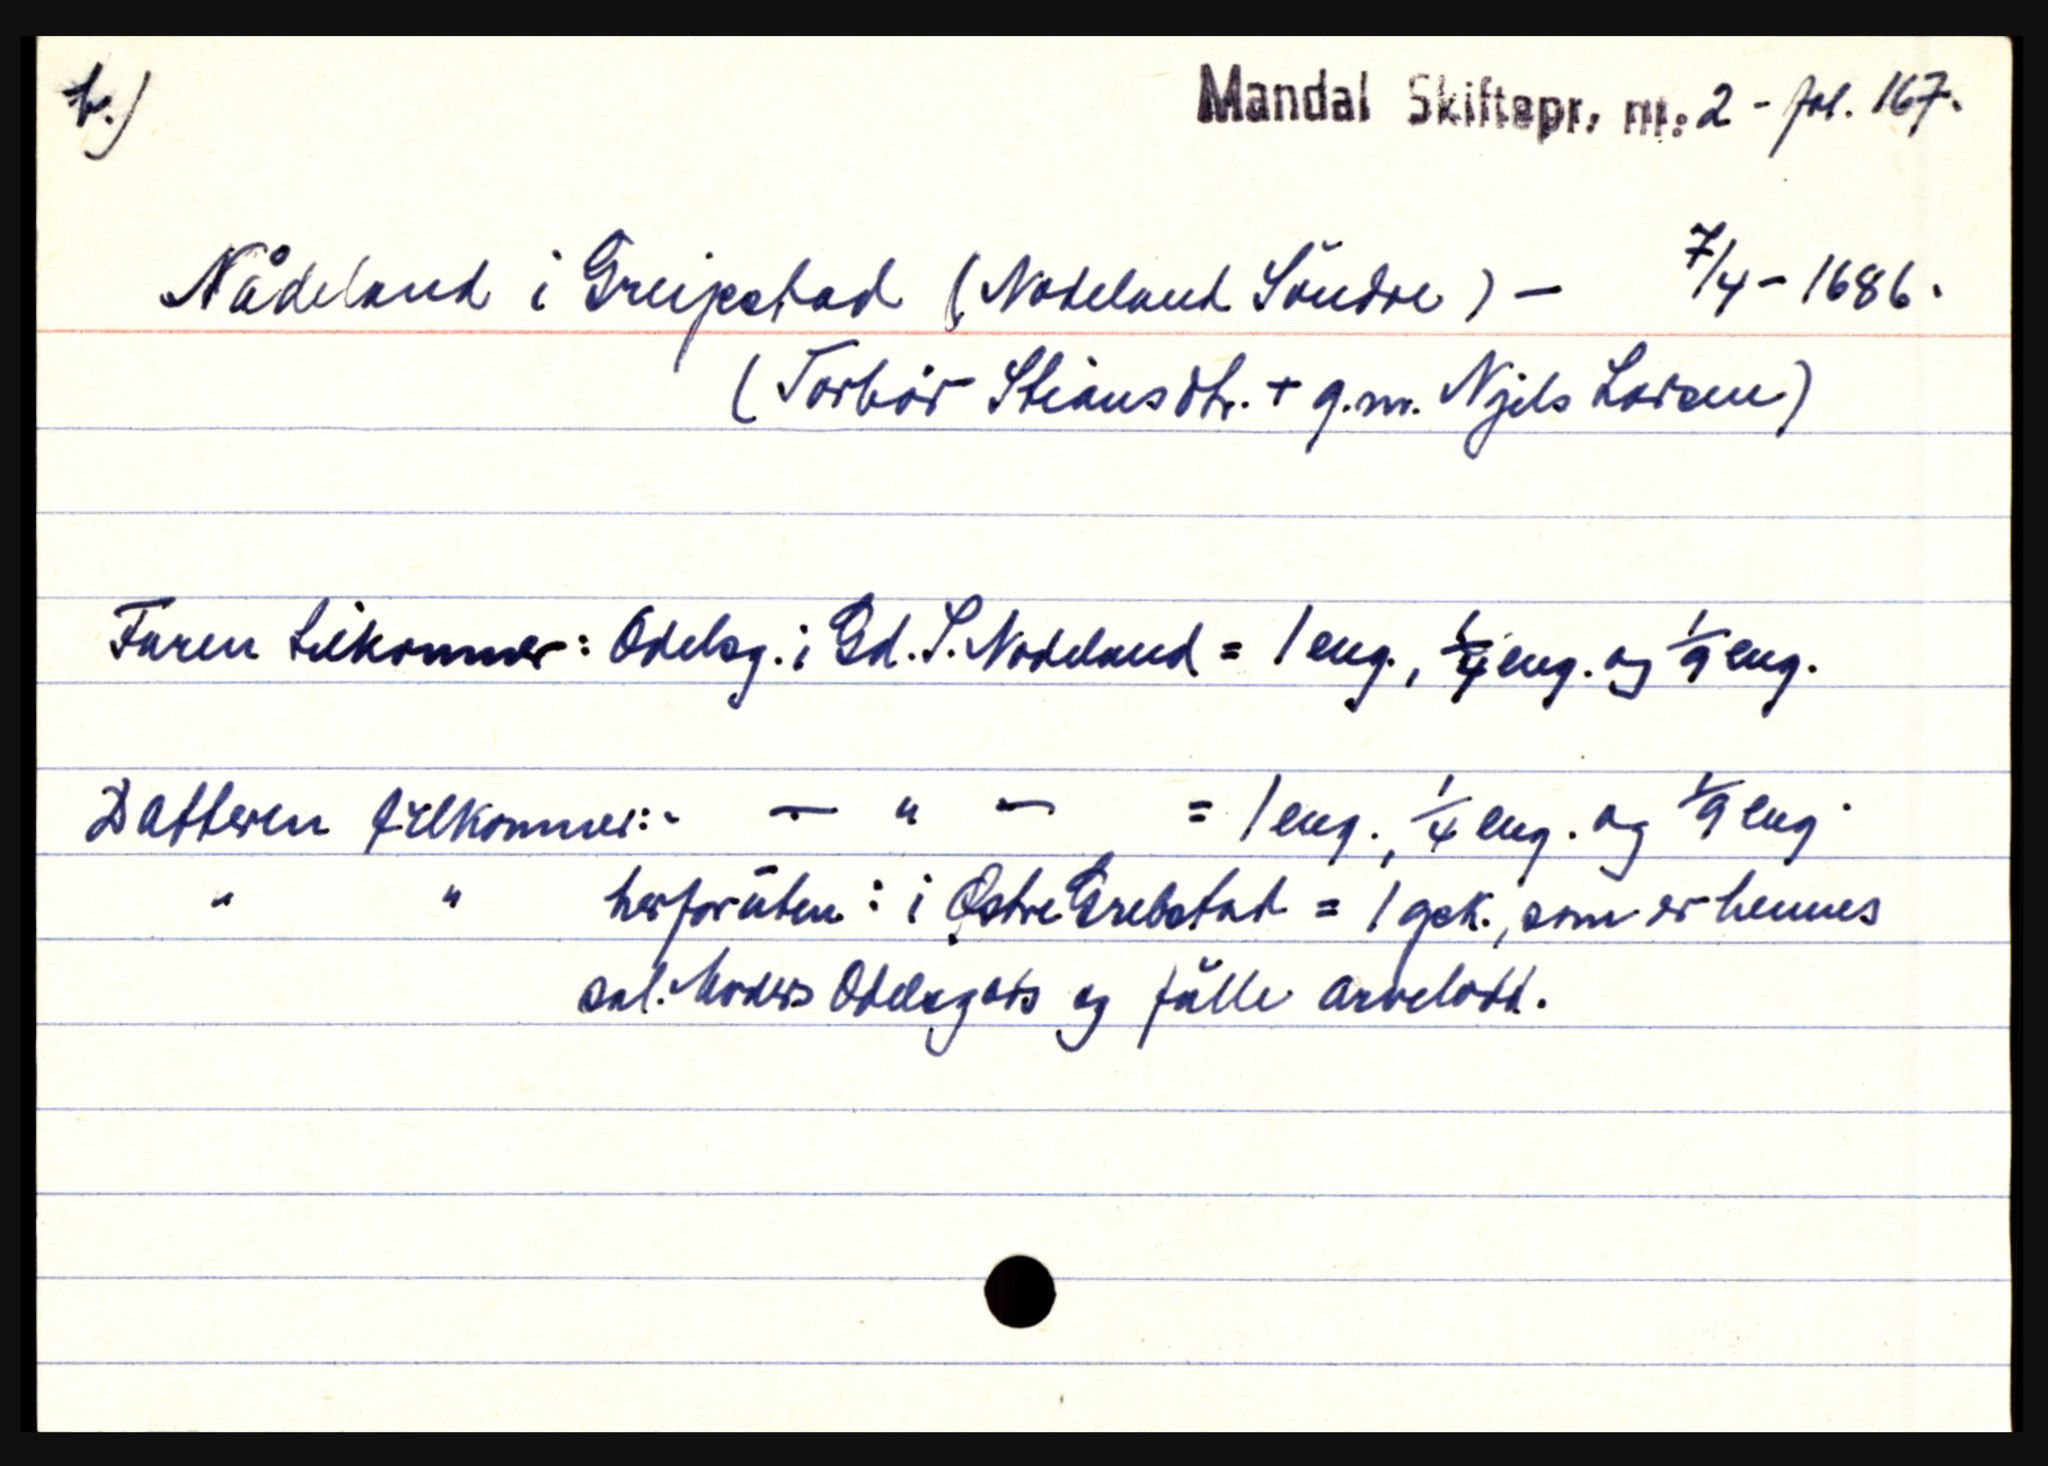 b.)
Mandal Skiftepr. nr: 2 - fol. 167.
Nådeland i Greipstad (Nodeland Söndre) — 7/4 - 1686.
(Torbör Stiansdtr. + g.m. Njels Larsen)
Faren tilkommer: Odelsg. i Gd. S. Nodeland = 1 eng., 1/4 eng. og 1/9 eng.
Datteren tilkommer:- — " — = 1 eng., 1/4 eng. og 1/9 eng.
" " herforüten: i Østre Grebstad = 1 gsk., som er hennes
sal. Moders Odelsgods og fülle arvelodd.